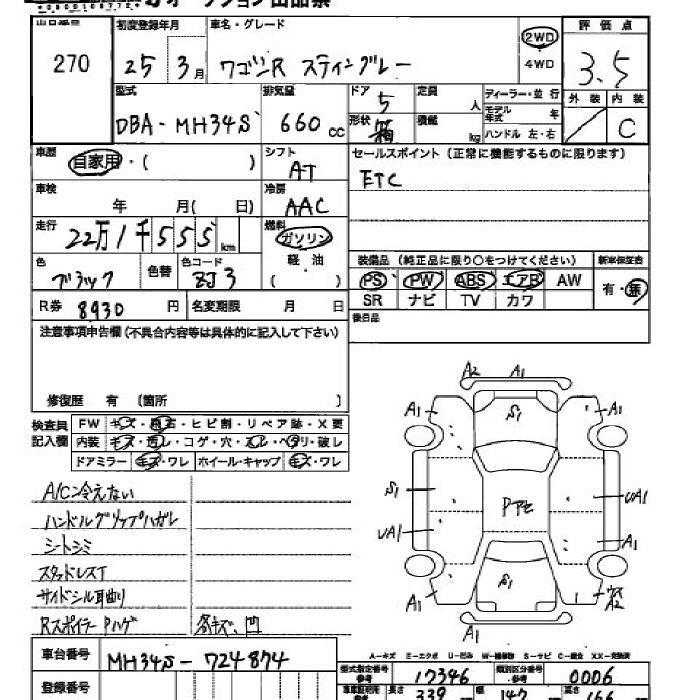 オークション出品票
出品番号 初度登録年月 車名・グレード 評価点
270 25 3月 ワゴンR スティングレー 2WD 4WD 3.5
型式 排気量 ドア 定員 ディーラー・並行 外装 内装
DBA-MH34S 660cc 5 人 モデル年式 年 C
形状 積載 ハンドル 左・右
箱 kg
車歴 自家用・( ) シフト AT セールスポイント(正常に機能するものに限ります)
ETC
車検 年 月( 日) 冷房 AAC
走行 22万1千555km 燃料 ガソリン 軽・油 ( )
装備品(純正品に限り○をつけてください) 新車保証書
色 ブラック 色替 色コード ZJ3
PS PW ABS エアB AW 有・無
SR ナビ TV カワ
R券 8930円 名変期限 月 日
後日品
注意事項申告欄(不具合内容等は具体的に記入して下さい)
修復歴 有 〔箇所 〕
検査員記入欄 FW キズ・飛石・ヒビ割・リペア跡・X要
内装 キズ・汚レ・コゲ・穴・スレ・ヘタリ・破レ
ドアミラー キズ・ワレ ホイール・キャップ キズ・ワレ
A2 A1
A1 S1 A1
S1 UA1
UA1 A1
S1
A1 A2
A1
A/C冷えない
ハンドルグリップハガレ
シートシミ
スタッドレスT
サイドシル耳曲り
Rスポイラー Pハゲ 各キズ、凹
車台番号 MH34S-724874
登録番号
A-キズ E-エクボ U-凹ミ W-補修跡 S-サビ C-腐食 XX-交換済
型式指定番号 参考 17346 類別区分番号 参考 0006
車車証明用 参考 長さ 339 cm 幅 147 cm 高さ 166 cm